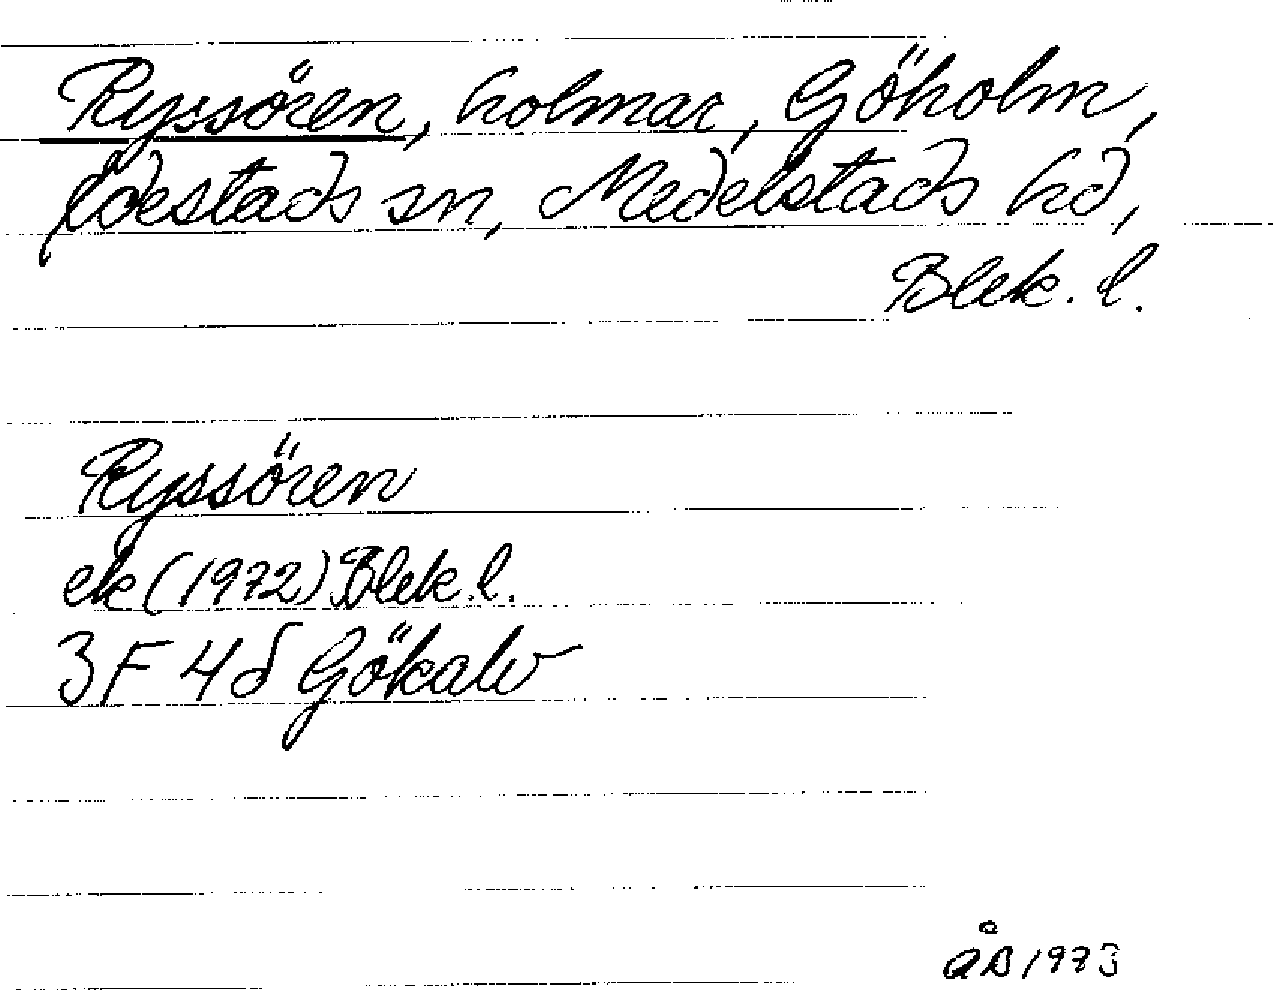 Ryssören, holmar, Göholm,
Edestads sn, Medelstads hd,
Blek. l.
Ryssören
ek (1972) Blek. l.
3F 4d Gökalv
ÅB 1973